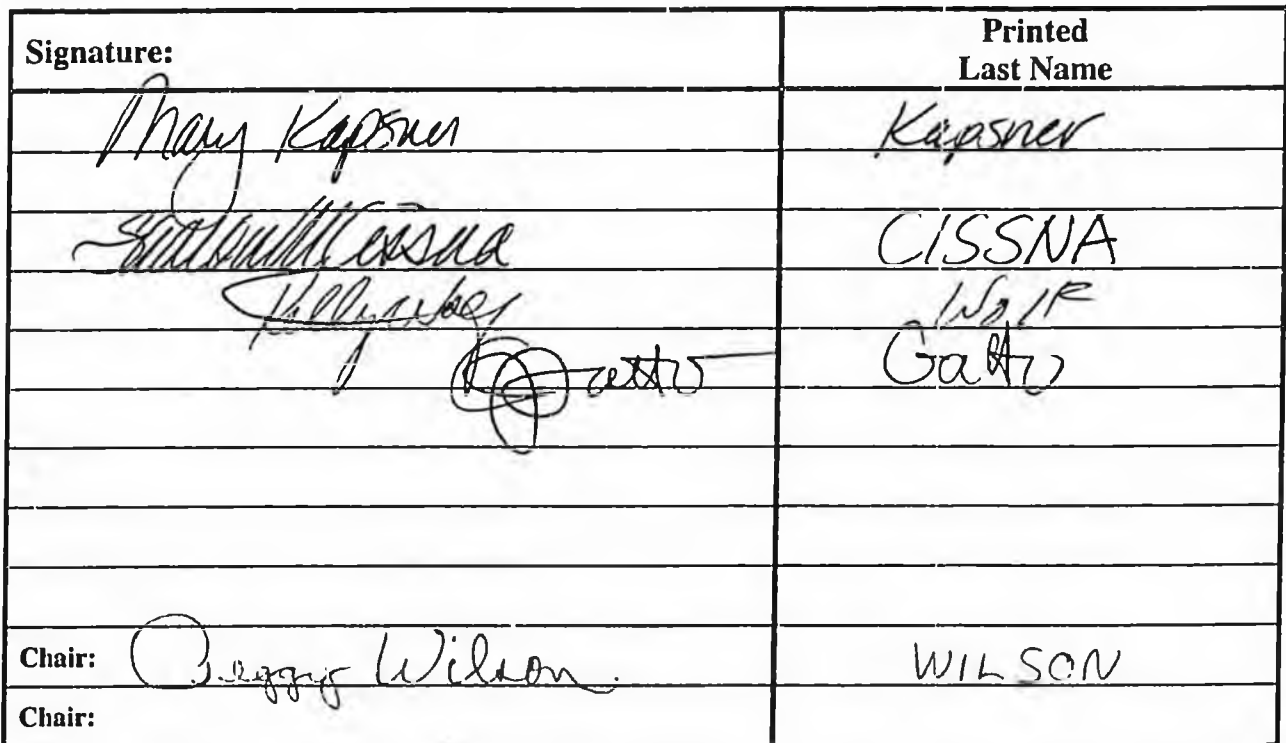 Signature: Printed Last Name
Mary Kapsner Kapsner
Cissna CISSNA
Wolf
Gatto Gatto
Chair: Peggy Wilson WILSON
Chair: